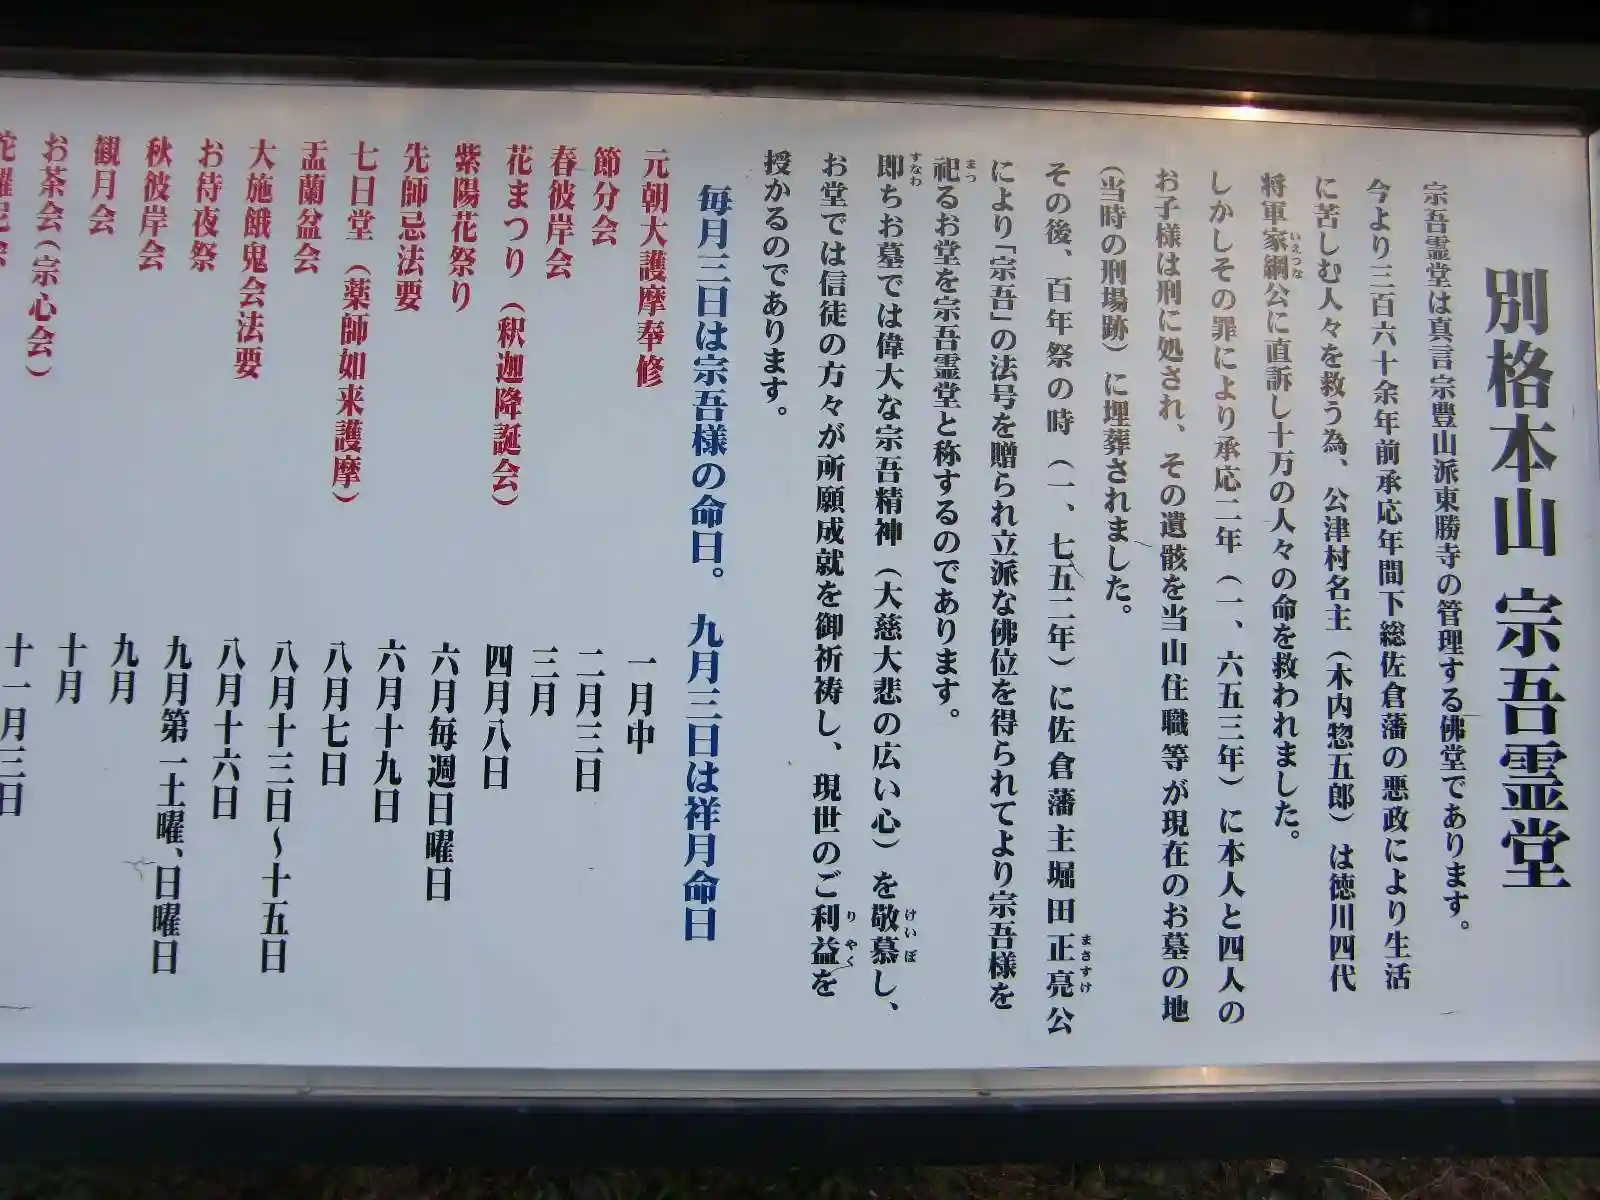 別格本山 宗吾霊堂
宗吾霊堂は真言宗豊山派東勝寺の管理する佛堂であります。
今より三百六十余年前承応年間下総佐倉藩の悪政により生活
に苦しむ人々を救う為、公津村名主（木内惣五郎）は徳川四代
将軍家綱公に直訴し十万の人々の命を救われました。
いえつな
しかしその罪により承応二年（一、六五三年）に本人と四人の
お子様は刑に処され、その遺骸を当山住職等が現在のお墓の地
（当時の刑場跡）に埋葬されました。
その後、百年祭の時（一、七五二年）に佐倉藩主堀田正亮公
まさすけ
により「宗吾」の法号を贈られ立派な佛位を得られてより宗吾様を
祀るお堂を宗吾霊堂と称するのであります。
まつ
即ちお墓では偉大な宗吾精神（大慈大悲の広い心）を敬慕し、
すなわ
けいぼ
お堂では信徒の方々が所願成就を御祈祷し、現世のご利益を
りやく
授かるのであります。
毎月三日は宗吾様の命日。 九月三日は祥月命日
元朝大護摩奉修 一月中
節分会 二月三日
春彼岸会 三月
花まつり（釈迦降誕会） 四月八日
紫陽花祭り 六月毎週日曜日
先師忌法要 六月十九日
七日堂（薬師如来護摩） 八月七日
盂蘭盆会 八月十三日～十五日
大施餓鬼会法要 八月十六日
お待夜祭 九月第一土曜、日曜日
秋彼岸会 九月
観月会 十月
お茶会（宗心会） 十一月三日